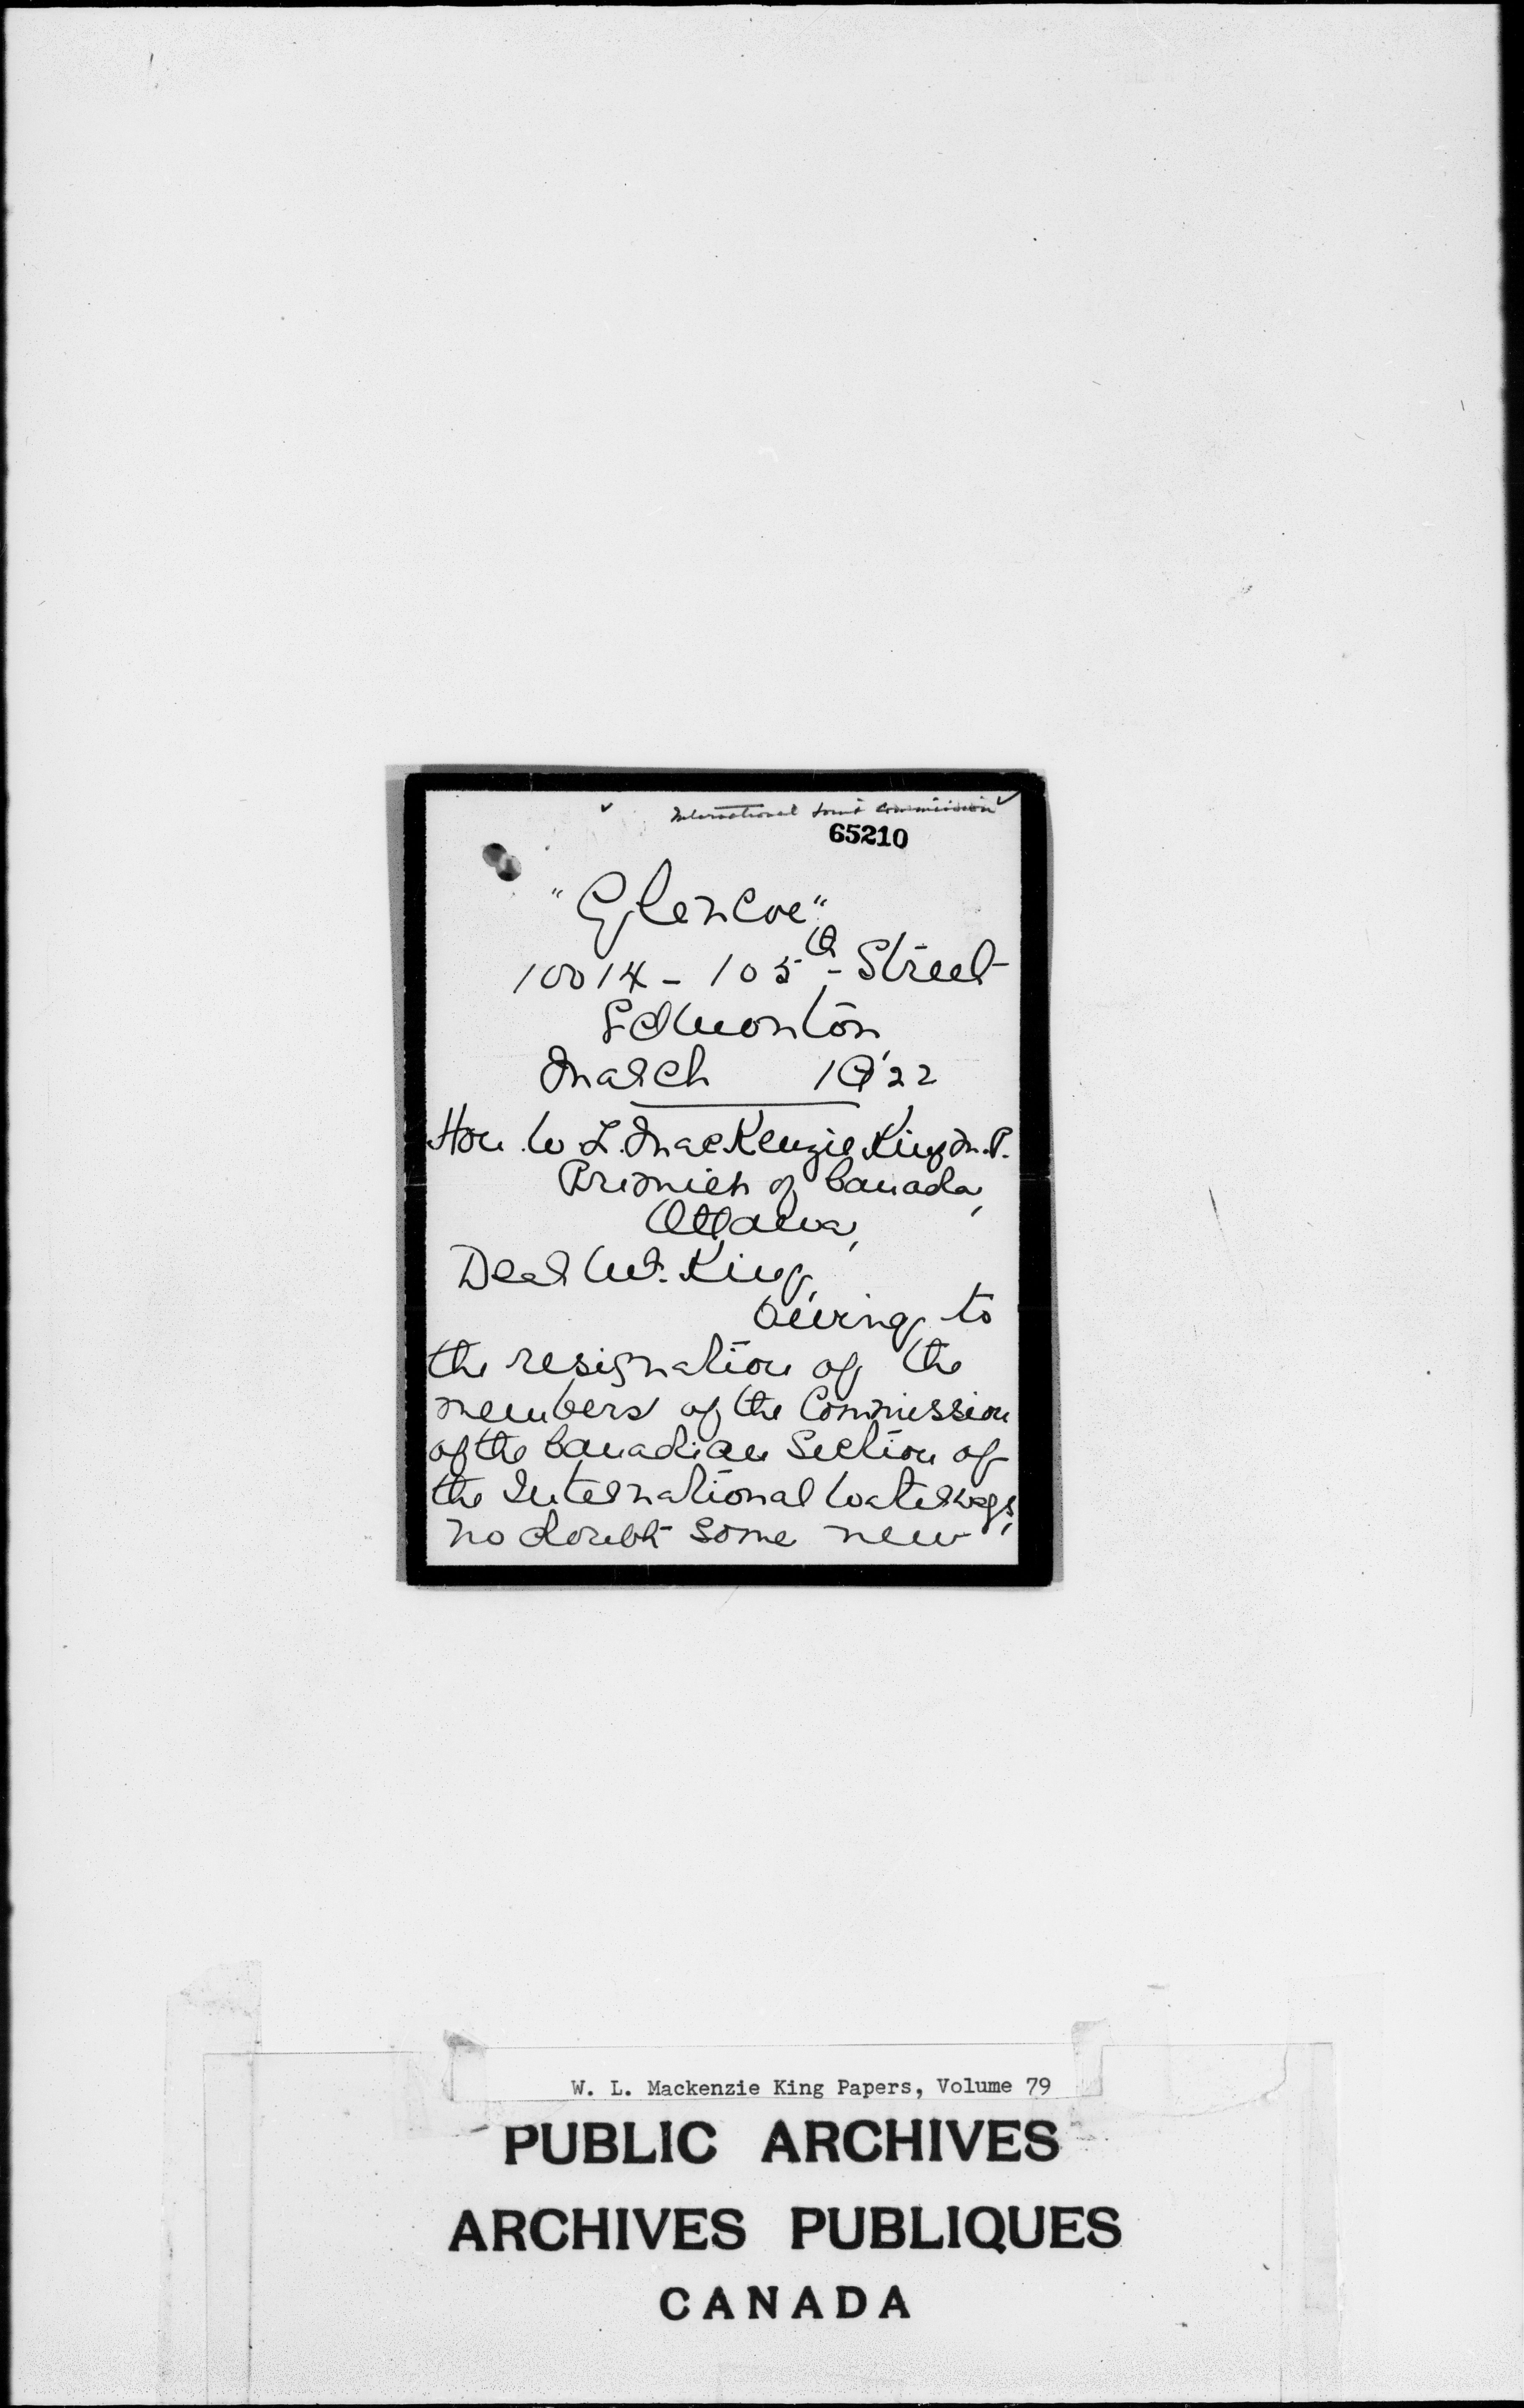 International Joint Commission
65210
"Glencoe"
10014 - 105th Street
Edmonton
March 1st '22
Hon. W. L. MacKenzie King M.P.
Premier of Canada,
Ottawa,
Dear Mr. King,
Owing to
the resignation of the
members of the Commission
of the Canadian Section of
the International Waterways,
no doubt some new
W. L. Mackenzie King Papers, Volume 79
PUBLIC ARCHIVES
ARCHIVES PUBLIQUES
CANADA